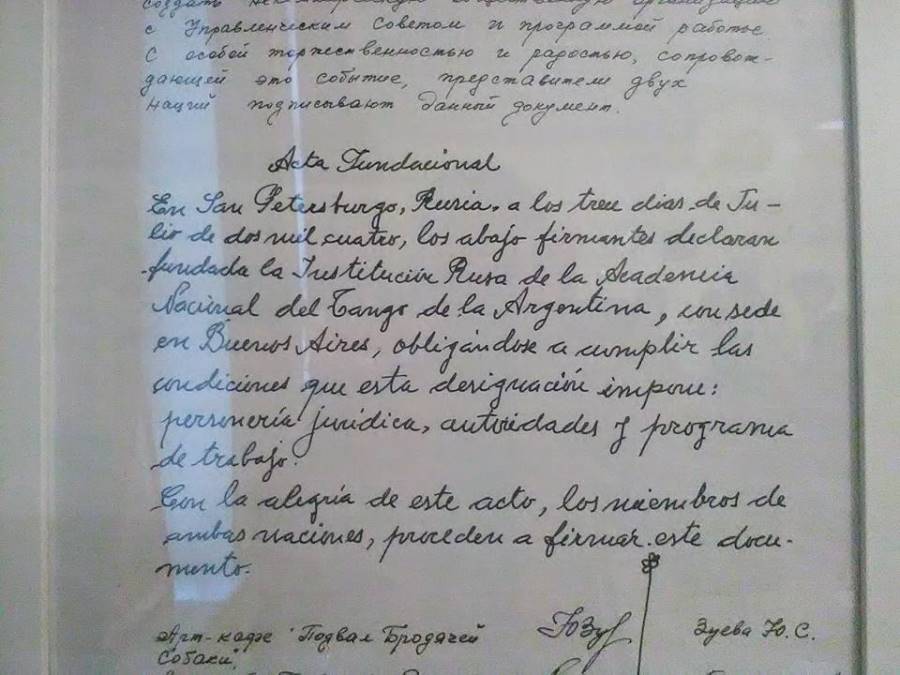 создать некоммерческую общественную организацию
с Управленческим Советом и программой работы.
С особой торжественностью и радостью, сопровож-
дающей это событие, представители двух
наций подписывают данный документ.
Acta Fundacional
En San Petersburgo, Rusia, a los tres dias de Ju-
lio de dos mil cuatro, los abajo firmantes declaran
fundada la Institución Rusa de la Academia
Nacional del Tango de la Argentina, con sede
en Buenos Aires, obligándose a cumplir las
condiciones que esta designación impone:
personería jurídica, autoridades y programa
de trabajo.
Con la alegría de este acto, los miembros de
ambas naciones, proceden a firmar este docu-
mento.
Арт-кафе "Подвал Бродячей Зуева Ю.С.
Собаки"